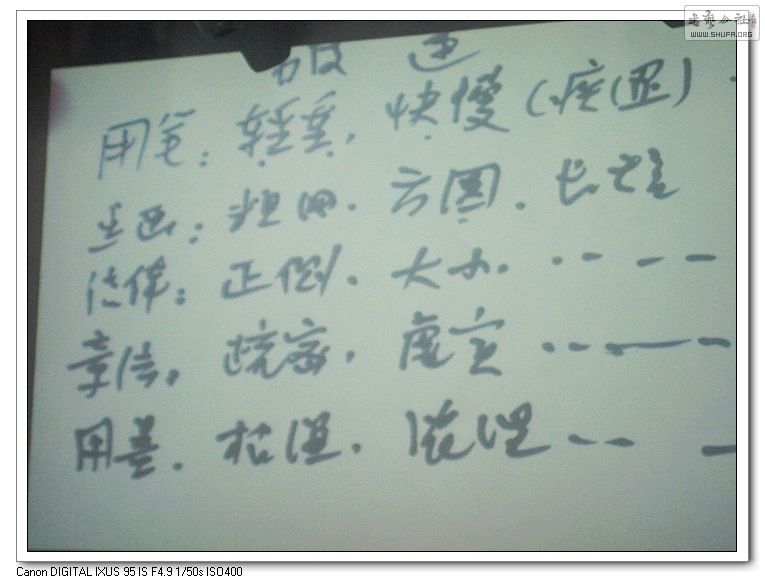 书艺公社
WWW.SHUFA.ORG
用笔：轻重，快慢（疾涩）
点画：粗细．方圆．长短
结体：正侧．大小．…——
章法．疏密．虚实…——
用墨．枯湿．浓淡…—
Canon DIGITAL IXUS 95 IS F4.9 1/50s ISO400